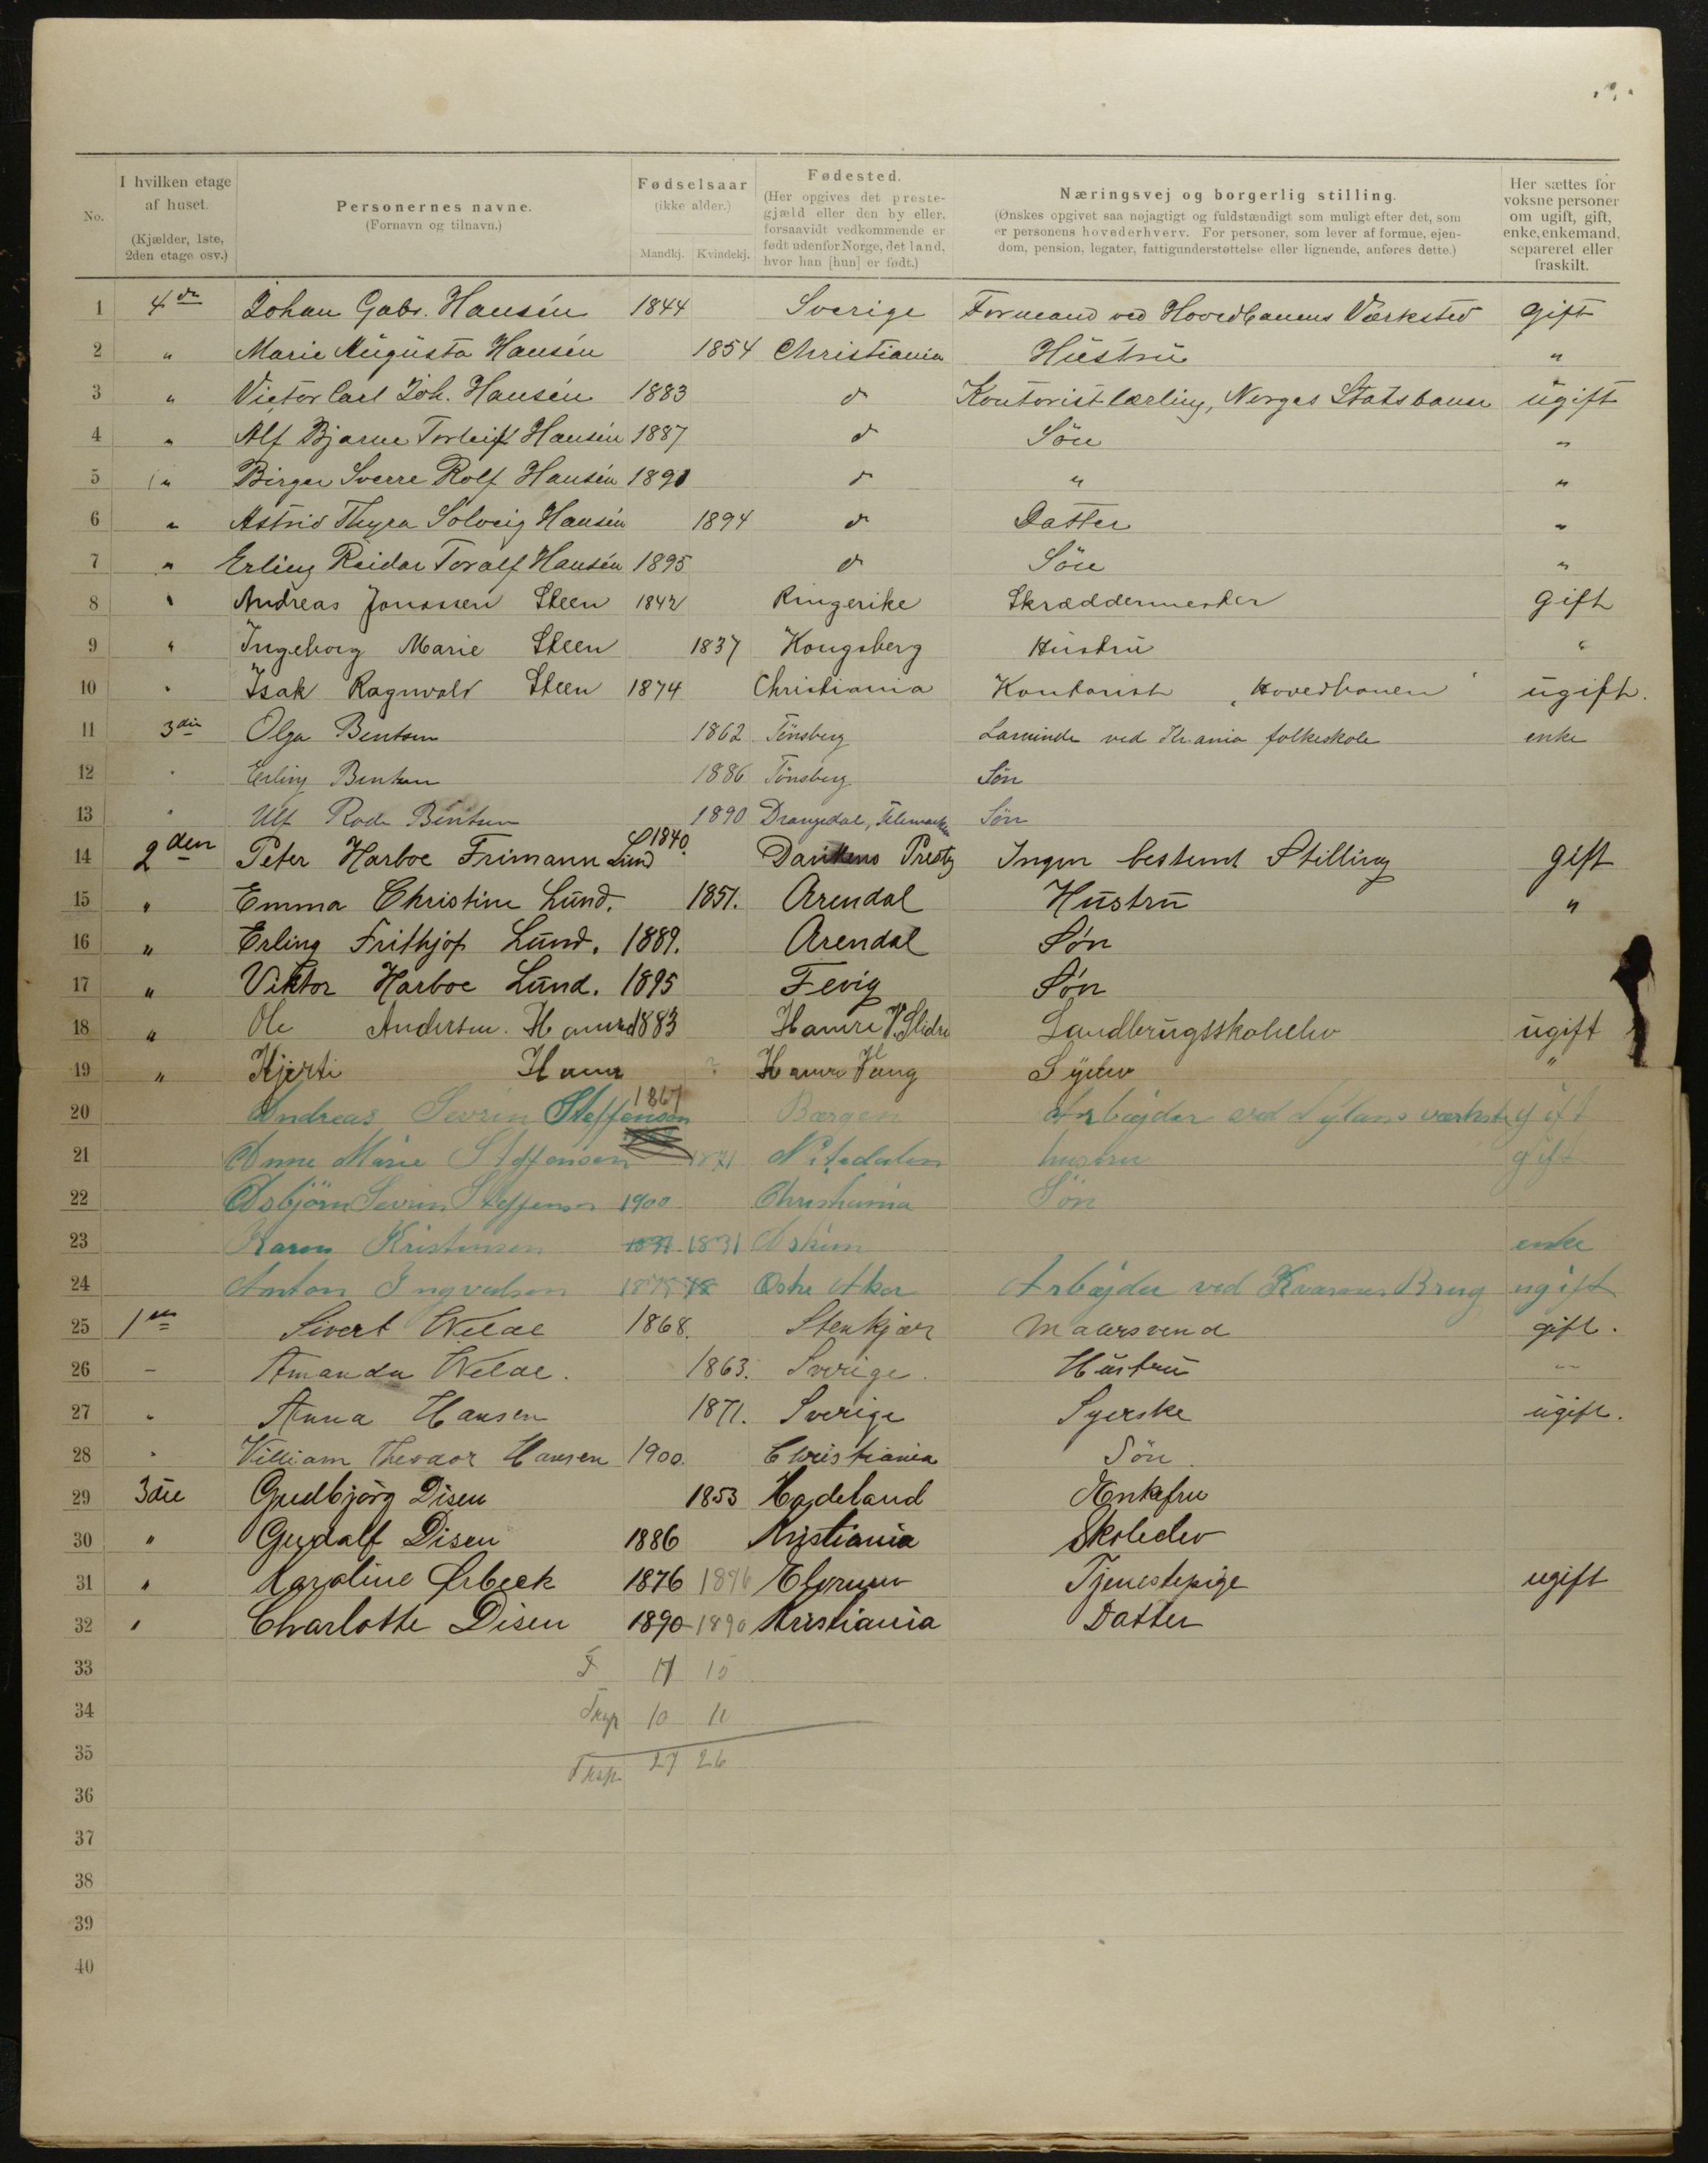 No.
I hvilken etage af huset. (Kjælder, 1ste, 2den etage osv.)
Personernes navne. (Fornavn og tilnavn.)
Fødselsaar (ikke alder.) Mandkj. Kvindekj.
Fødested. (Her opgives det prestegjæld eller den by eller, forsaavidt vedkommende er født udenfor Norge, det land, hvor han [hun] er født.)
Næringsvej og borgerlig stilling. (Ønskes opgivet saa nøjagtigt og fuldstændigt som muligt efter det, som er personens hovederhverv. For personer, som lever af formue, ejendom, pension, legater, fattigunderstøttelse eller lignende, anføres dette.)
Her sættes for voksne personer om ugift, gift, enke, enkemand, separeret eller fraskilt.
1 4de Johan Gabr. Hansén 1844 Sverige Formand ved Hovedbanens Værksted gift
2 " Marie Augusta Hansén 1854 Christiania Hustru "
3 " Victor Carl Joh. Hansén 1883 d Kontoristlærling, Norges Statsbaner ugift
4 " Alf Bjarne Torleif Hansén 1887 d Søn "
5 " Birger Sverre Rolf Hansén 1890 d " "
6 " Astrid Thyra Solveig Hansén 1894 d Datter "
7 " Erling Reidar Toralf Hansén 1895 d Søn "
8 " Andreas Jonassen Steen 1842 Ringerike Skræddermester gift
9 " Ingeborg Marie Steen 1837 Kongsberg Hustru "
10 " Isak Ragnvald Steen 1874 Christiania Kontorist „Hovedbanen" ugift.
11 3die Olga Bentsen 1862 Tönsberg Lærerinde ved Kr.ania folkeskole enke
12 " Erling Bentsen 1886 Tönsberg Sön
13 " Ulf Rode Bentsen 1890 Drangedal, Telemarken Sön
14 2den Peter Harboe Frimann Lund 1840. Prestg Ingen bestemt Stilling gift
15 " Emma Christine Lund. 1851. Arendal Hustru "
16 " Erling Frithjof Lund. 1889. Arendal Søn
17 " Viktor Harboe Lund. 1895 Fevig Søn
18 " Ole Andersen Hamre 1883 Hamre V. Slidre Landbrugsskoleelev ugift
19 " Kjersti Hamre ? Hamre Vang Syelev "
20 Andreas Sevrin Steffensen 1867 Bærgen Arbejder ved Nylans værkste gift
21 Anne Marie Steffensen 1871 Nitedalen hustru gift
22 Asbjörn Sevrin Steffensen 1900 Christiania Sön
23 Karen Kristensen 1831 Askim enke
24 Anton Ingvalsen 1875 Østre Aker Arbejder ved Kværner Brug ugift
25 1ste Sivert Welde 1868. Stenkjær Malersvend gift.
26 – Amanda Welde. 1863. Sverige. Hustru "
27 " Anna Hansen 1871. Sverige Syerske ugift.
28 " Villiam Theodor Hansen 1900. Christiania Sön.
29 3die Gudbjörg Disen 1853 Hadeland Enkefru
30 " Gudalf Disen 1886 Kristiania Skoleelev
31 " Karoline Ørbeck 1876 1876 Elverum Tjenestepige ugift
32 " Charlotte Disen 1890 1890 Kristiania Datter
33 17 15
34 10 11
35 27 26
36
37
38
39
40